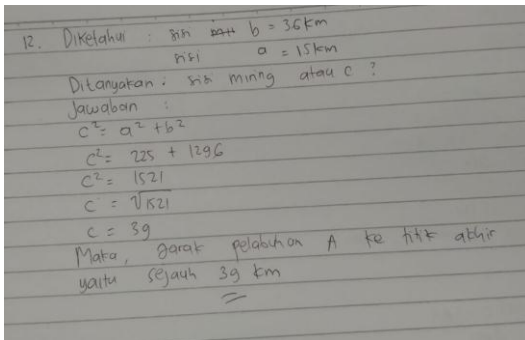 12. Diketahui : sisi b = 36 km
sisi a = 15 km
Ditanyakan : sisi miring atau c ?
Jawaban :
c² = a² + b²
c² = 225 + 1296
c² = 1521
c = √1521
c = 39
Maka, Jarak pelabuhan A ke titik akhir
yaitu sejauh 39 km